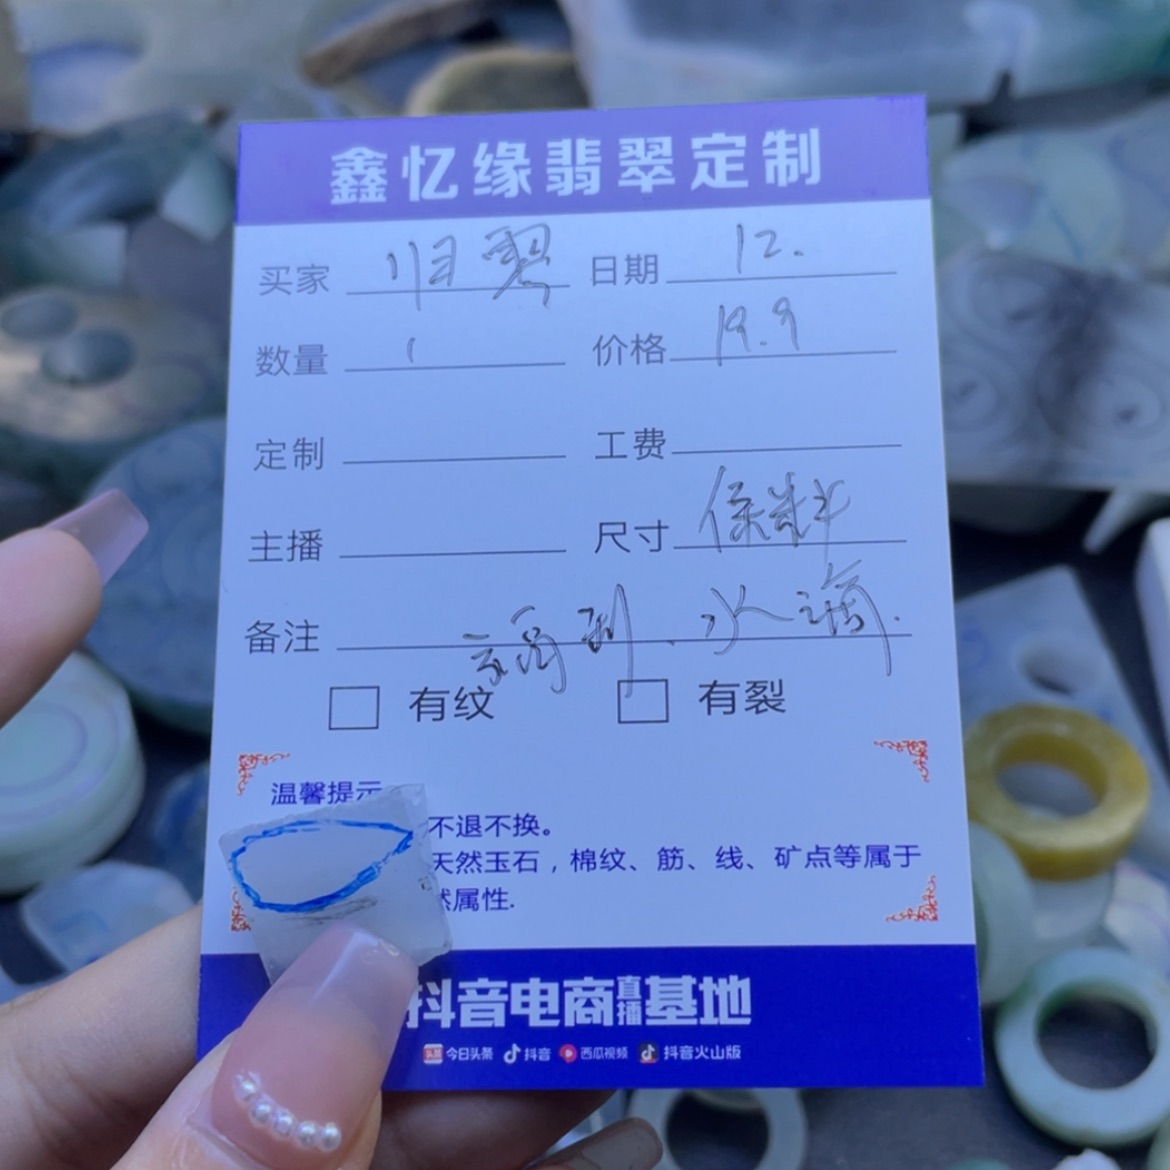 鑫忆缘翡翠定制
买家 归翠 日期 12.
数量 1 价格 19.9
定制 工费
主播 尺寸 保料
备注 水滴.
有纹 有裂
温馨提示
不退不换。
天然玉石，棉纹、筋、线、矿点等属于
然属性.
抖音电商直播基地
头条 今日头条 抖音 西瓜视频 抖音火山版